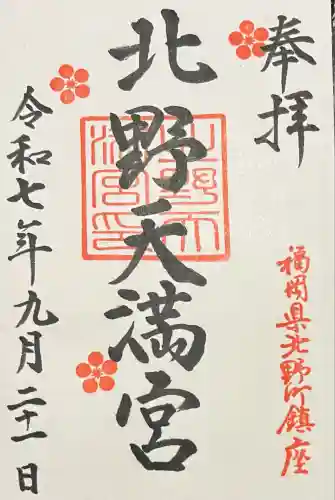 奉拝
福岡県北野町鎮座
北野天満宮
令和七年九月二十一日